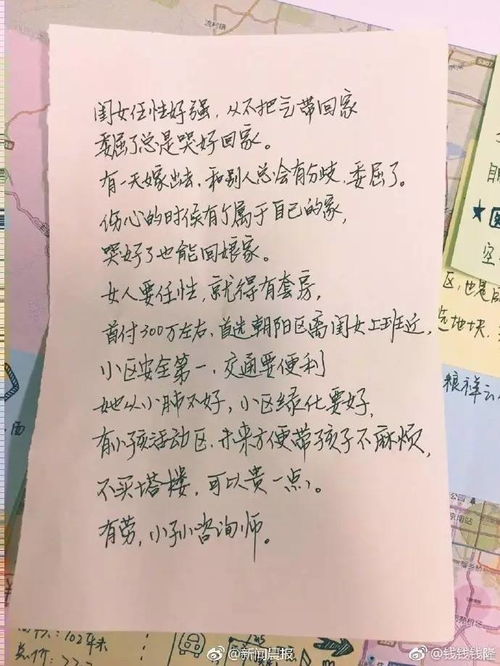 闺女任性好强，从不把气带回家
委屈了总是哭好回家。
有一天嫁出去，和别人总会有分歧，委屈了。
伤心的时候有个属于自己的家，
哭好了也能回娘家。
女人要任性，就得有套房，
首付300万左右，首选朝阳区离闺女上班近，
小区安全第一，交通要便利
她从小肺不好，小区绿化要好，
有小孩活动区，未来方便带孩子不麻烦，
不买塔楼，可以贵一点。
有劳，小孙咨询师。
@新闻晨报
@钱钱钱隆